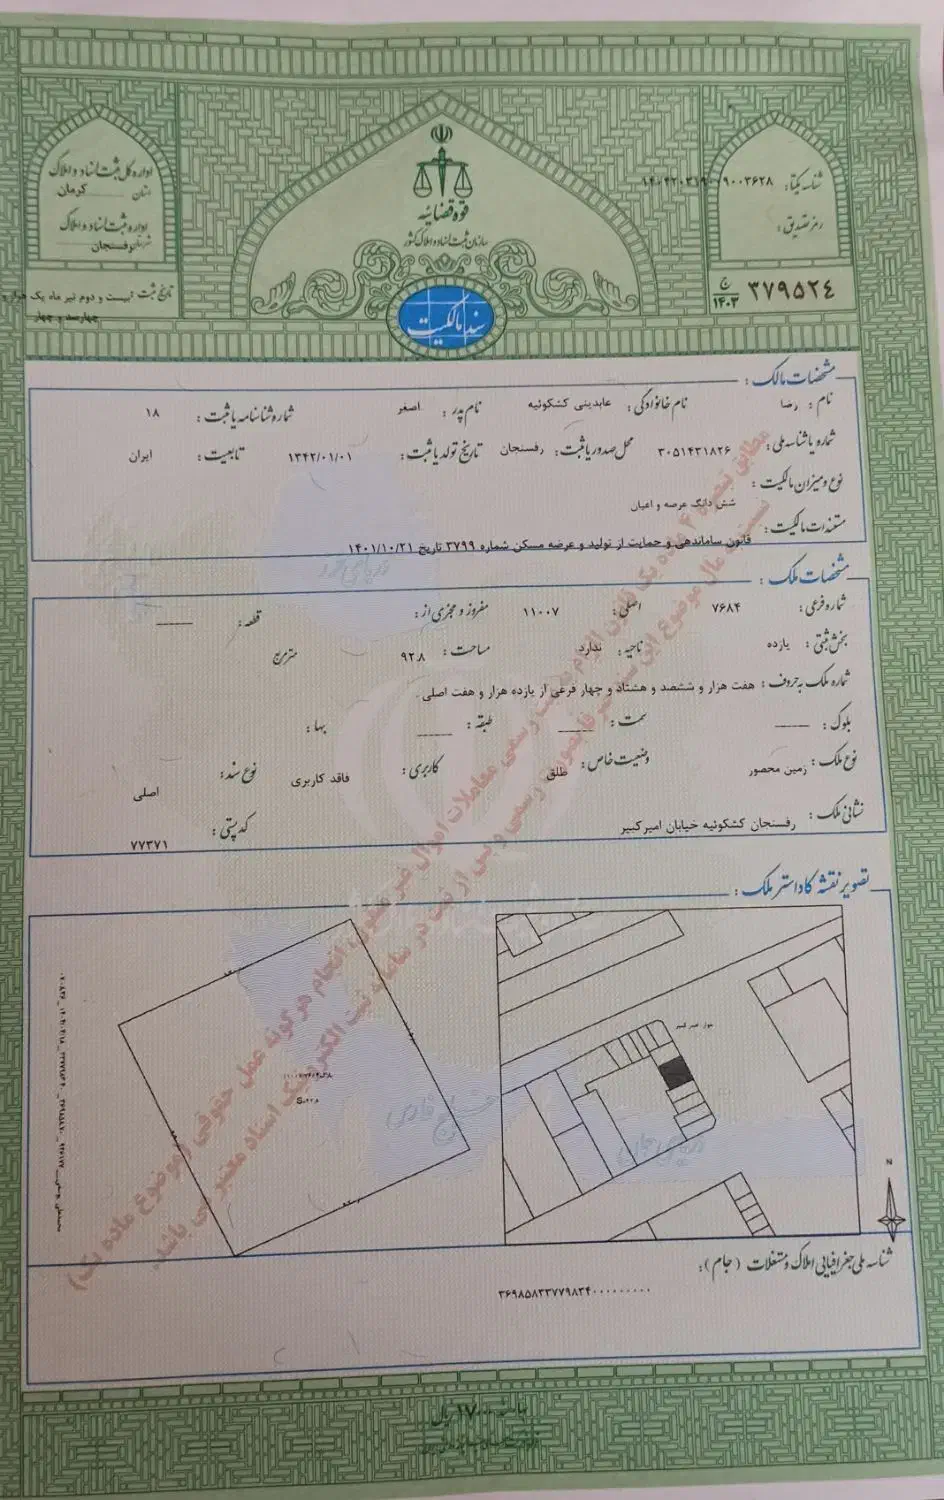 قوه قضائیه
سازمان ثبت اسناد و املاک کشور
سند مالکیت
شناسه یکتا:
رمز تصدیق:
۳۷۹۵۲۴ ج ۱۴۰۳
اداره کل ثبت اسناد و املاک
استان کرمان
اداره ثبت اسناد و املاک
شهرستان رفسنجان
تاریخ ثبت: بیست و دوم تیر ماه یک هزار و
چهارصد و چهار
مشخصات مالک:
نام: رضا نام خانوادگی: عابدینی کشکوئیه نام پدر: اصغر شماره شناسنامه یا ثبت: ۱۸
شماره یا شناسه ملی: ۳۰۵۱۴۳۱۸۲۶ محل صدور یا ثبت: رفسنجان تاریخ تولد یا ثبت: ۱۳۴۲/۰۱/۰۱ تابعیت: ایران
نوع و میزان مالکیت:
شش دانگ عرصه و اعیان
مستندات مالکیت:
قانون ساماندهی و حمایت از تولید و عرضه مسکن شماره ۳۷۹۹ تاریخ ۱۴۰۱/۱۰/۲۱
مشخصات ملک:
شماره فرعی: ۷۶۸۴ اصلی: ۱۱۰۰۷ مفروز و مجزی از: قطعه: ———
بخش ثبتی: یازده ناحیه: ندارد مساحت: ۹۲.۸ مترمربع
شماره ملک به حروف: هفت هزار و ششصد و هشتاد و چهار فرعی از یازده هزار و هفت اصلی .
بلوک: ——— سمت: ——— طبقه: ——— بها:
نوع ملک: زمین محصور وضعیت خاص: طلق کاربری: فاقد کاربری نوع سند: اصلی
نشانی ملک: رفسنجان کشکوئیه خیابان امیرکبیر کد پستی: ۷۷۳۷۱
تصویر نقشه کاداستر ملک:
N
شناسه ملی جغرافیایی املاک و مستغلات (جام):
مطابق تبصره ۴ ماده یک قانون الزام به ثبت رسمی معاملات اموال غیر منقول، انجام هرگونه عمل حقوقی (موضوع ماده یک)
نسبت به مال موضوع این سند صرفاً بصورت رسمی و پس از ثبت در سامانه ثبت الکترونیک اسناد معتبر می باشد.
دریای خزر
خلیج فارس
دریای عمان